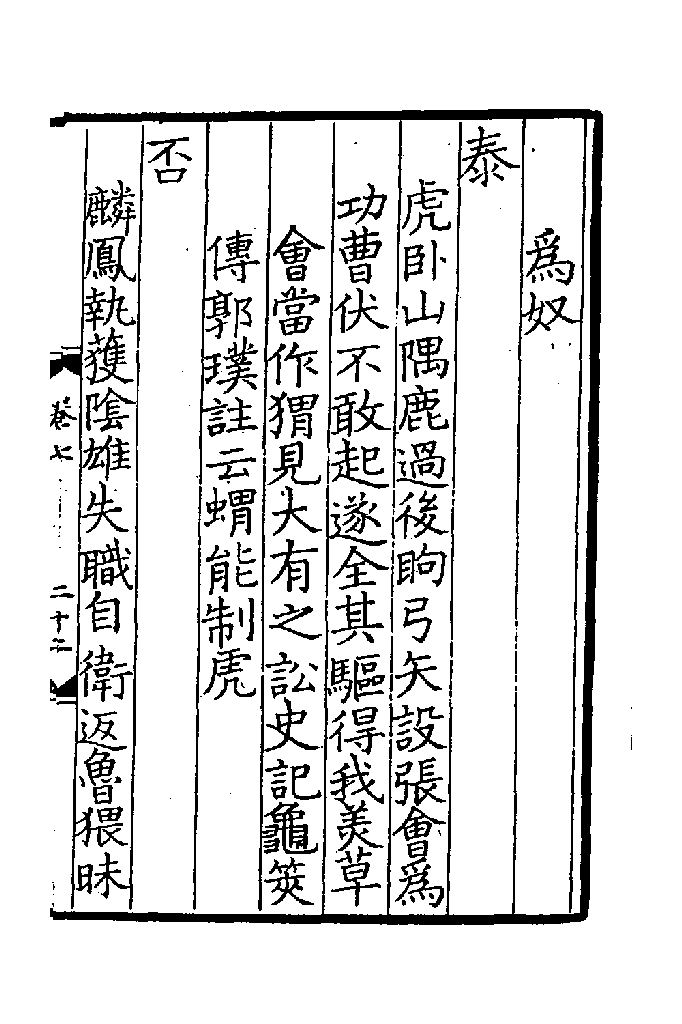 爲奴
泰
虎卧山隅鹿過後朐弓矢設張會爲
功曹伏不敢起遂全其驅得我羙草
會當作猬見大有之訟史記龜筴
傳郭璞註云蝟能制虎
否
麟鳳執䕶隂雄失職自衛返魯猥昧
卷七
二十二